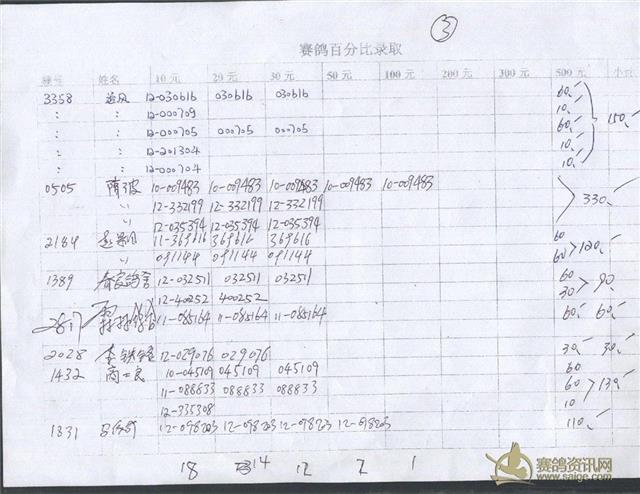 ③
赛鸽百分比录取
棚号 姓名 10元 20元 30元 50元 100元 200元 300元 500元 小计
3358 追风 12-030616 030616 030616 60.
: : 12-000709 10.
: : 12-000705 000705 000705 60. 150.
: : 12-201304 10.
: : 12-000704 10.
0505 隋波 10-009483 10-009483 10-009483 10-009483 10-009483
〃 12-332199 12-332199 12-332199 330.
〃 12-035394 12-035394 12-035394
2184 11-369616 369616 369616 60
〃 091144 091144 091144 60 120.
1389 12-032511 032511 032511 60
12-40252 400252 30 90.
2817 11-085164 11-085164 11-085164 60. 60.
2028 李铁 12-029076 029076 30. 30.
1432 商二良 10-045109 045109 045109 60
11-088833 088833 088833 60 130.
12-335308 10
1831 110.
18 14 12 2 1
赛鸽资讯网
www.saige.com